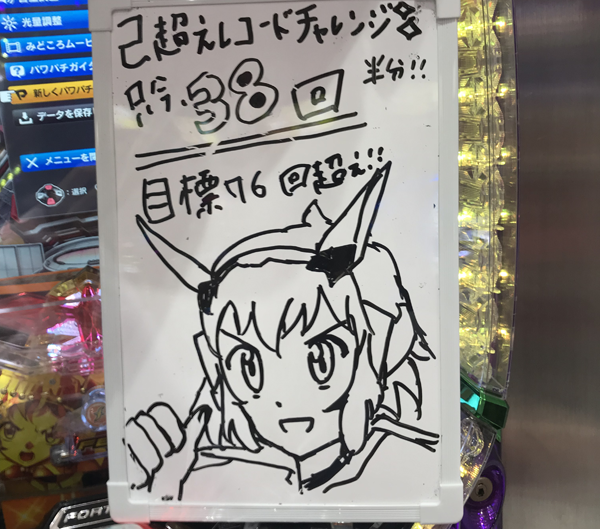 己超えレコードチャレンジ
只今、38回
半分!!
目標76回超え!!
光量調整
みどころムービ
パワパチガイダ
新しくパワパチ
データを保存
メニューを閉
:選択
FORT